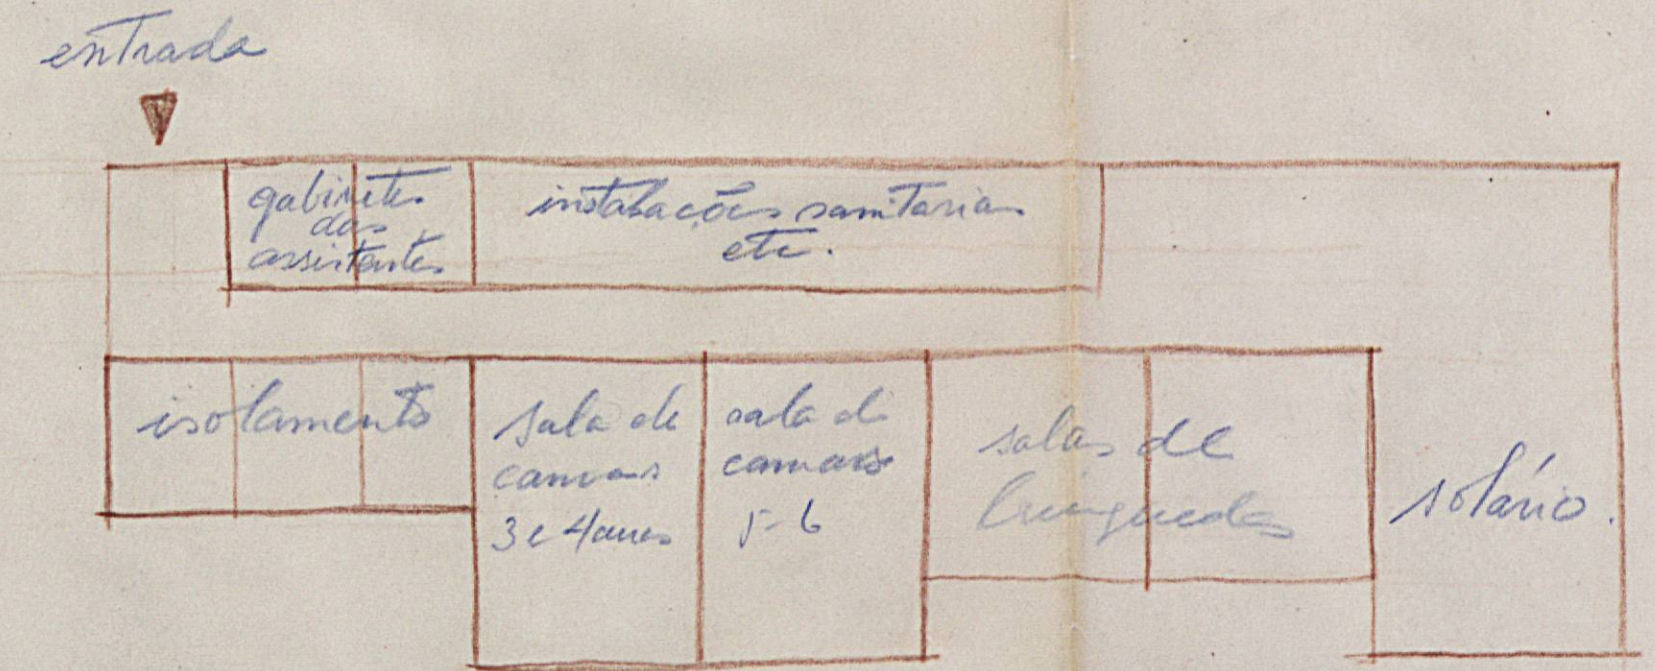 entrada
gabinetes
das
assistentes
instalações sanitarias
etc.
isolamento
sala de
camas
3 e 4 anos
sala de
camas
5-6
salas de
brinquedos
solário.